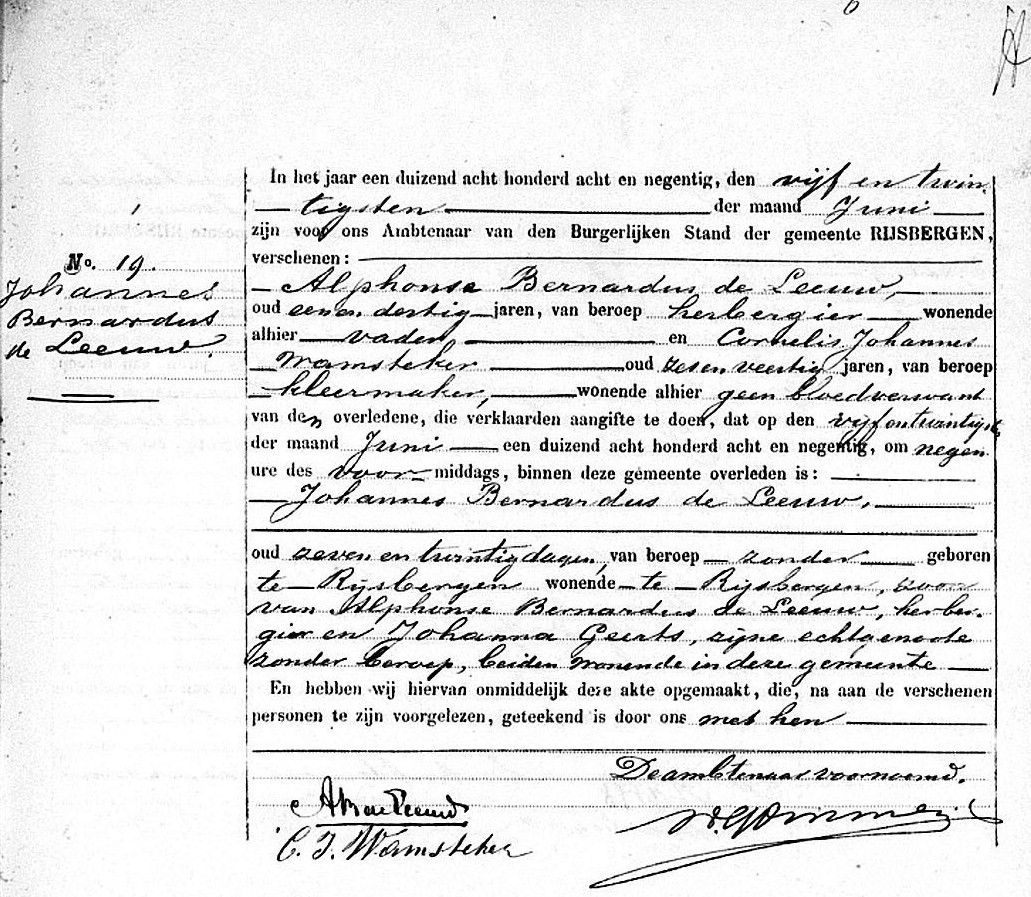 No. 19.
Johannes
Bernardus
de Leeuw.
In het jaar een duizend acht honderd acht en negentig, den vijf en twin-
tigsten der maand Juni
zijn voor ons Ambtenaar van den Burgerlijken Stand der gemeente RIJSBERGEN,
verschenen:
Alphonse Bernardus de Leeuw,
oud een en dertig jaren, van beroep herbergier wonende
alhier vader en Cornelis Johannes
Wamsteker oud zes en veertig jaren, van beroep
kleermaker, wonende alhier geen bloedverwant
van den overledene, die verklaarden aangifte te doen, dat op den vijf en twintigst
der maand Juni een duizend acht honderd acht en negentig, om negen
ure des voor middags, binnen deze gemeente overleden is:
Johannes Bernardus de Leeuw.
oud zeven en twintig dagen van beroep zonder geboren
te Rijsbergen wonende te Rijsbergen, zoon
van Alphonse Bernardus de Leeuw, herber-
gier en Johanna Geerts, zijne echtgenoote
zonder beroep, beiden wonende in deze gemeente
En hebben wij hiervan onmiddelijk deze akte opgemaakt, die, na aan de verschenen
personen te zijn voorgelezen, geteekend is door ons met hen
De ambtenaar voornoemd.
AB de Leeuw
C. J. Wamsteker